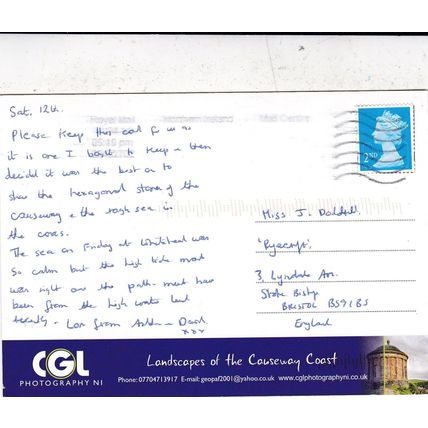 Sat. 12th.
Please keep this card for us as
it is one I bought to keep & then
decided it was the best one to
show the hexagonal stones of the
Causeway & the rough sea in
the caves.
The sea on Friday at Whitehead was
so calm but the high tide mark
was right over the path - must have
been from the high water level
recently. - Love from Dad.
xxx
Royal Mail Northern Ireland Mail Centre
05:19 pm
2ND
Miss J.
'Ryecroft',
3, Lyndale Av.
Stoke Bishop
BRISTOL BS9 1BS
England
CGL
PHOTOGRAPHY NI
Landscapes of the Causeway Coast
Phone: 07704713917 E-mail: geopaf2001@yahoo.co.uk www.cglphotographyni.co.uk